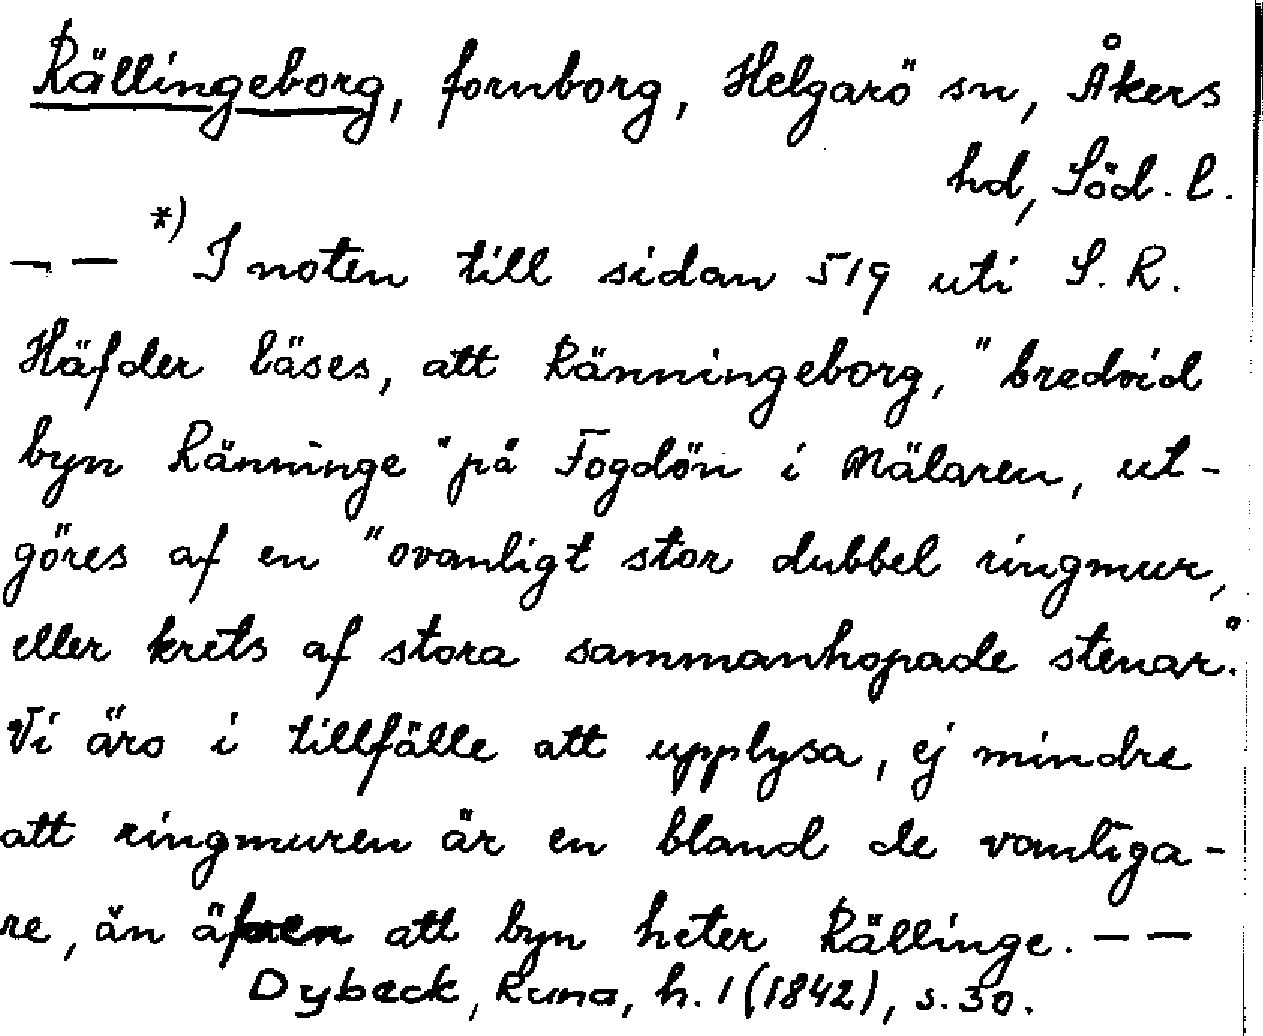 Rällingeborg, fornborg, Helgarö sn, Åkers
hd, Söd. l.
— — *) I noten till sidan 519 uti S. R.
Häfder läses, att Ränningeborg, "bredvid
byn Ränninge" på Fogdön i Mälaren, ut-
göres af en "ovanligt stor dubbel ringmur,
eller krets af stora sammanhopade stenar."
Vi äro i tillfälle att upplysa, ej mindre
att ringmuren är en bland de vanliga-
re, än äfven att byn heter Rällinge. — —
Dybeck, Runa, h. 1 (1842), s. 30.